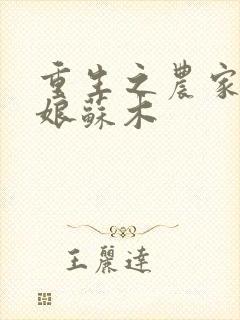 重生之農家
娘蘇木
王麗達